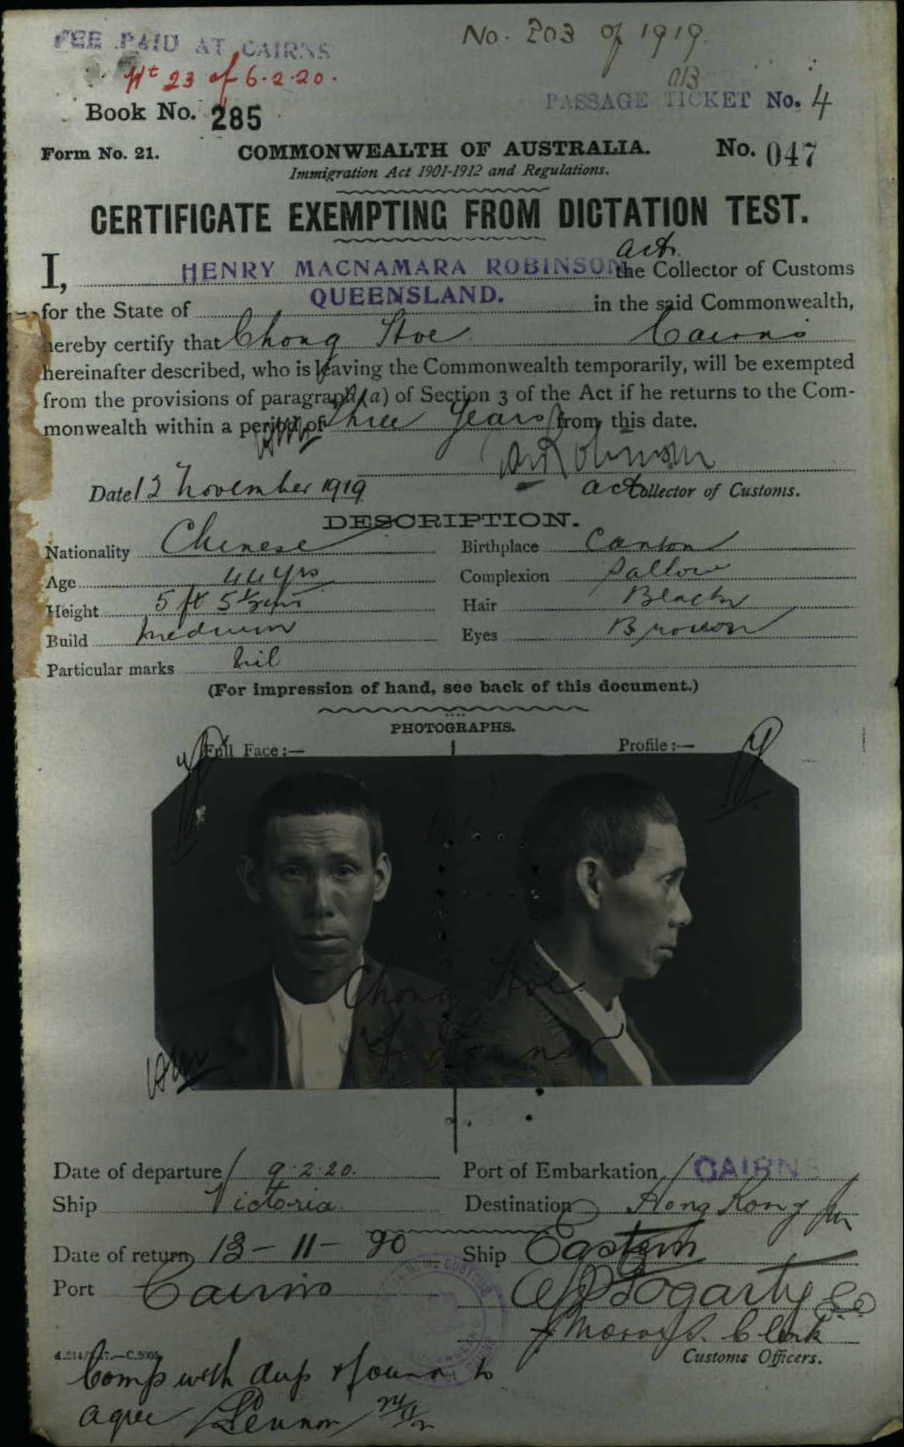 FEE PAID AT CAIRNS
No. 203 of 1919.
Wt 23 of 6.2.20.
Book No. 285
PASSAGE TICKET No. 4
013
Form No. 21.
COMMONWEALTH OF AUSTRALIA.
No. 047
Immigration Act 1901-1912 and Regulations.
CERTIFICATE EXEMPTING FROM DICTATION TEST.
Act.
I, HENRY MACNAMARA ROBINSON the Collector of Customs
for the State of QUEENSLAND. in the said Commonwealth,
hereby certify that Chong Hoe Cairns
hereinafter described, who is leaving the Commonwealth temporarily, will be exempted
from the provisions of paragraph (a) of Section 3 of the Act if he returns to the Com-
monwealth within a period of Three Years from this date.
Date 12 November 1919
Act Collector of Customs.
DESCRIPTION.
Nationality Chinese Birthplace Canton
Age 44 yrs Complexion Sallow
Height 5 ft 5½ ins Hair Black
Build medium Eyes Brown
Particular marks nil
(For impression of hand, see back of this document.)
PHOTOGRAPHS.
Full Face:— Profile:—
Chong Hoe
Date of departure 9.2.20. Port of Embarkation CAIRNS
Ship Victoria. Destination Hong Kong
Date of return 13-11-20 Ship Eastern
Port Cairns
Fogarty
Clerk
Customs Officers.
Comp with dup & found to
agree Lennon